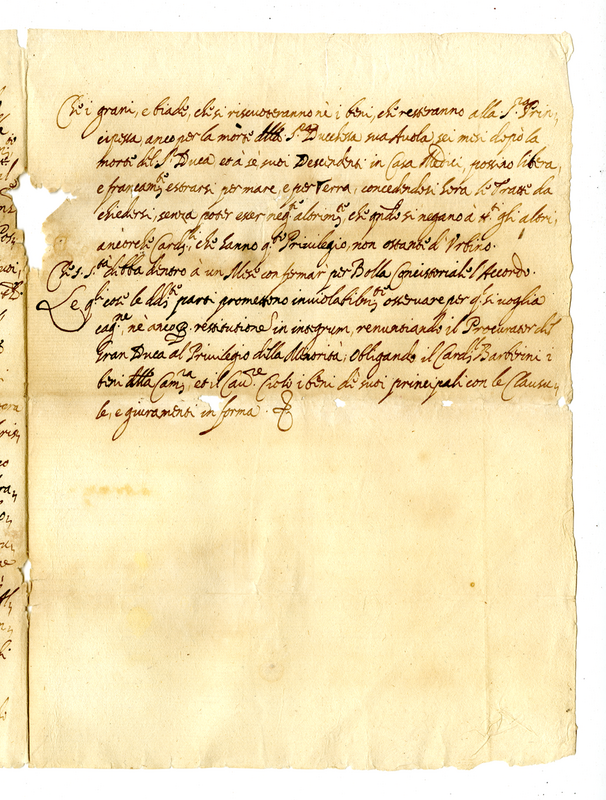 Che i grani, e biade, che si riscuoteranno nè i beni, che resteranno alla S.ra Prin-
cipessa, anco per la morte della S.ra Duchessa sua Auola, sei mesi dopò la
morte del S.r Duca et à se suoi Descendenti in Casa Medici, possino libera,
e francam.te estrarsi per mare, e per Terra, concedendosi hora le Tratte da
chiedersi, senza poter esser neg.te altrim.te che q.ndo si negano à t.ti gli altri,
ancorche Card.li che hanno q.to Privilegio, non ostante d'Urbino.
Che S. S.tà debba dentro à un Mese confermar per Bolla Concistoriale l'Accordo.
Le q.li cose le dd.te parti promettono inviolabilm.te osservare per q.l si voglia
cag.ne, nè anco restitutione in integrum, renuntiando il Procurator del
Gran Duca al Privilegio della Minorità, Obligando il Card.l Barberini i
beni della Cam.ra, et il Cau.re Cioli i beni de suoi principali con le Clausu-
le, e giuramenti in forma.